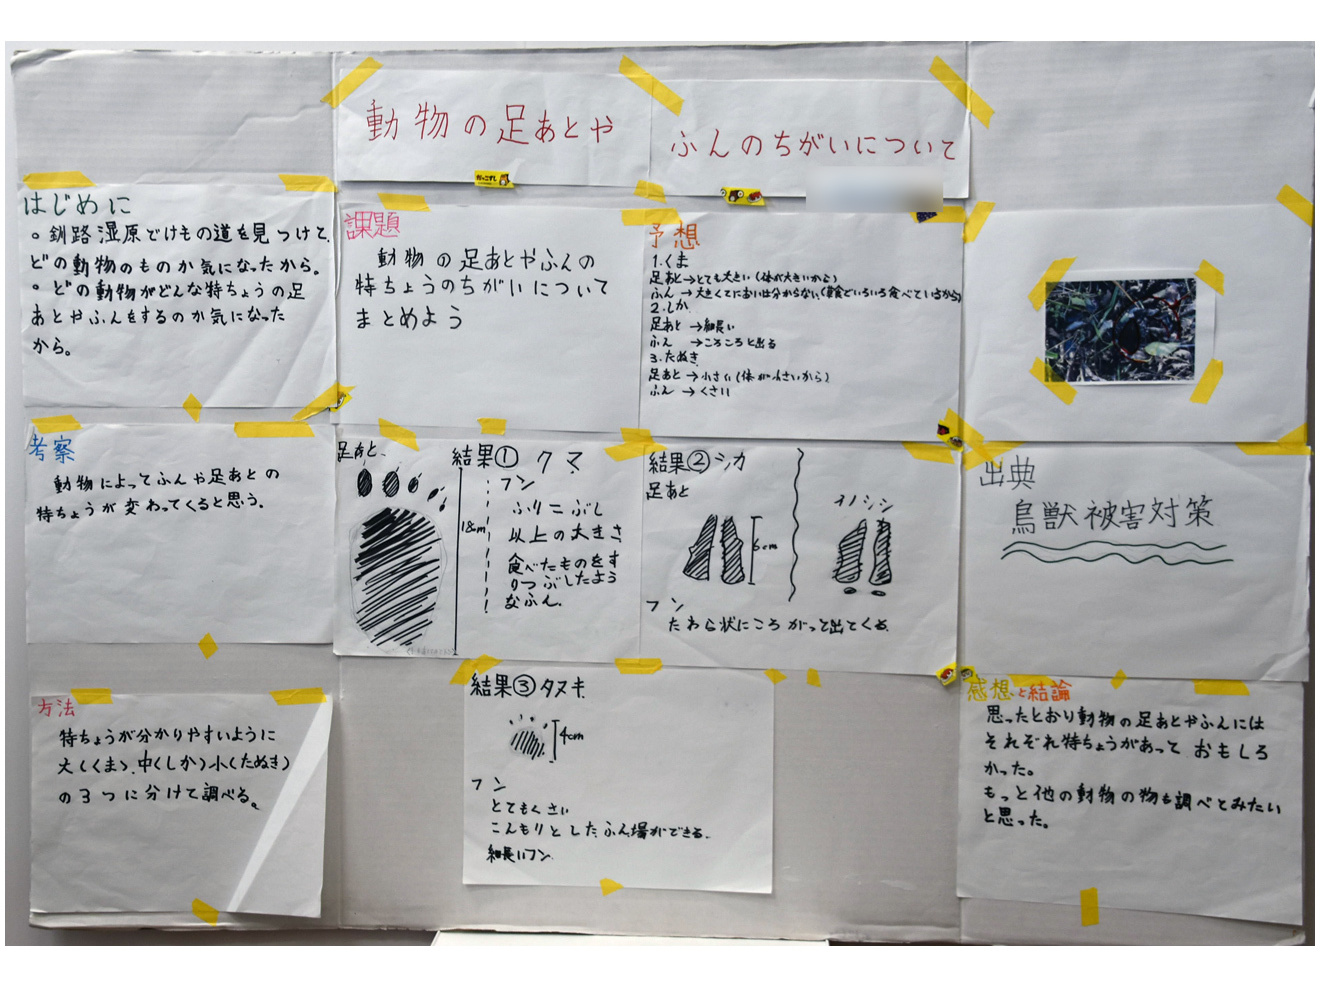 動物の足あとや
ふんのちがいについて
はじめに
。釧路湿原でけもの道を見つけて、
どの動物のものか気になったから。
。どの動物がどんな特ちょうの足
あとやふんをするのか気になった
から。
課題
動物の足あとやふんの
特ちょうのちがいについて
まとめよう
予想
1.くま
足あと→とても大きい(体が大きいから)
ふん→大きくてにおいは分からない(雑食でいろいろ食べているから)
2.しか
足あと→細長い
ふん→ころころと出る
3.たぬき
足あと→小さい(体が小さいから)
ふん→くさい
考察
動物によってふんや足あとの
特ちょうが変わってくると思う。
方法
特ちょうが分かりやすいように
大(くま)、中(しか)小(たぬき)
の3つに分けて調べる。
足あと、
結果① クマ
18cm
フン
ふりこぶし
以上の大きさ
食べたものをす
りつぶしたよう
なふん。
結果②シカ
足あと
6cm
イノシシ
フン
たわら状にころがって出てくる。
結果③タヌキ
4cm
フン
とてもくさい
こんもりとしたふん場ができる。
細長いフン
出典
鳥獣被害対策
感想と結論
思ったとおり動物の足あとやふんには
それぞれ特ちょうがあっておもしろ
かった。
もっと他の動物の物も調べてみたい
と思った。